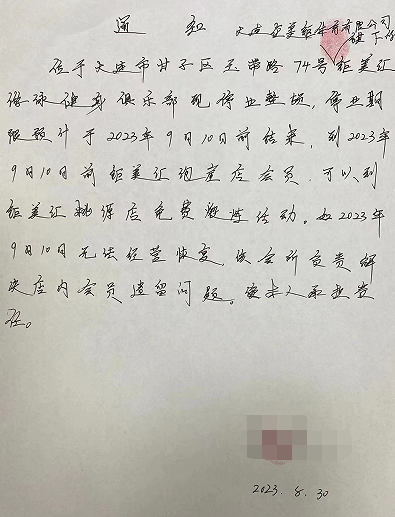 通 知
大连钜美钜体育有限公司
旗下的
位于大连市甘子区玉带路74号钜美汇
游泳健身俱乐部现停业整顿，停业期
限预计于2023年9月10日前结束，到2023年
9月10日前钜美汇泡崖店会员，可以到
钜美汇桃源店免费锻炼活动。如2023年
9月10日无法经营恢复，该会所负责解
决店内会员遗留问题。
任。
2023. 8. 30